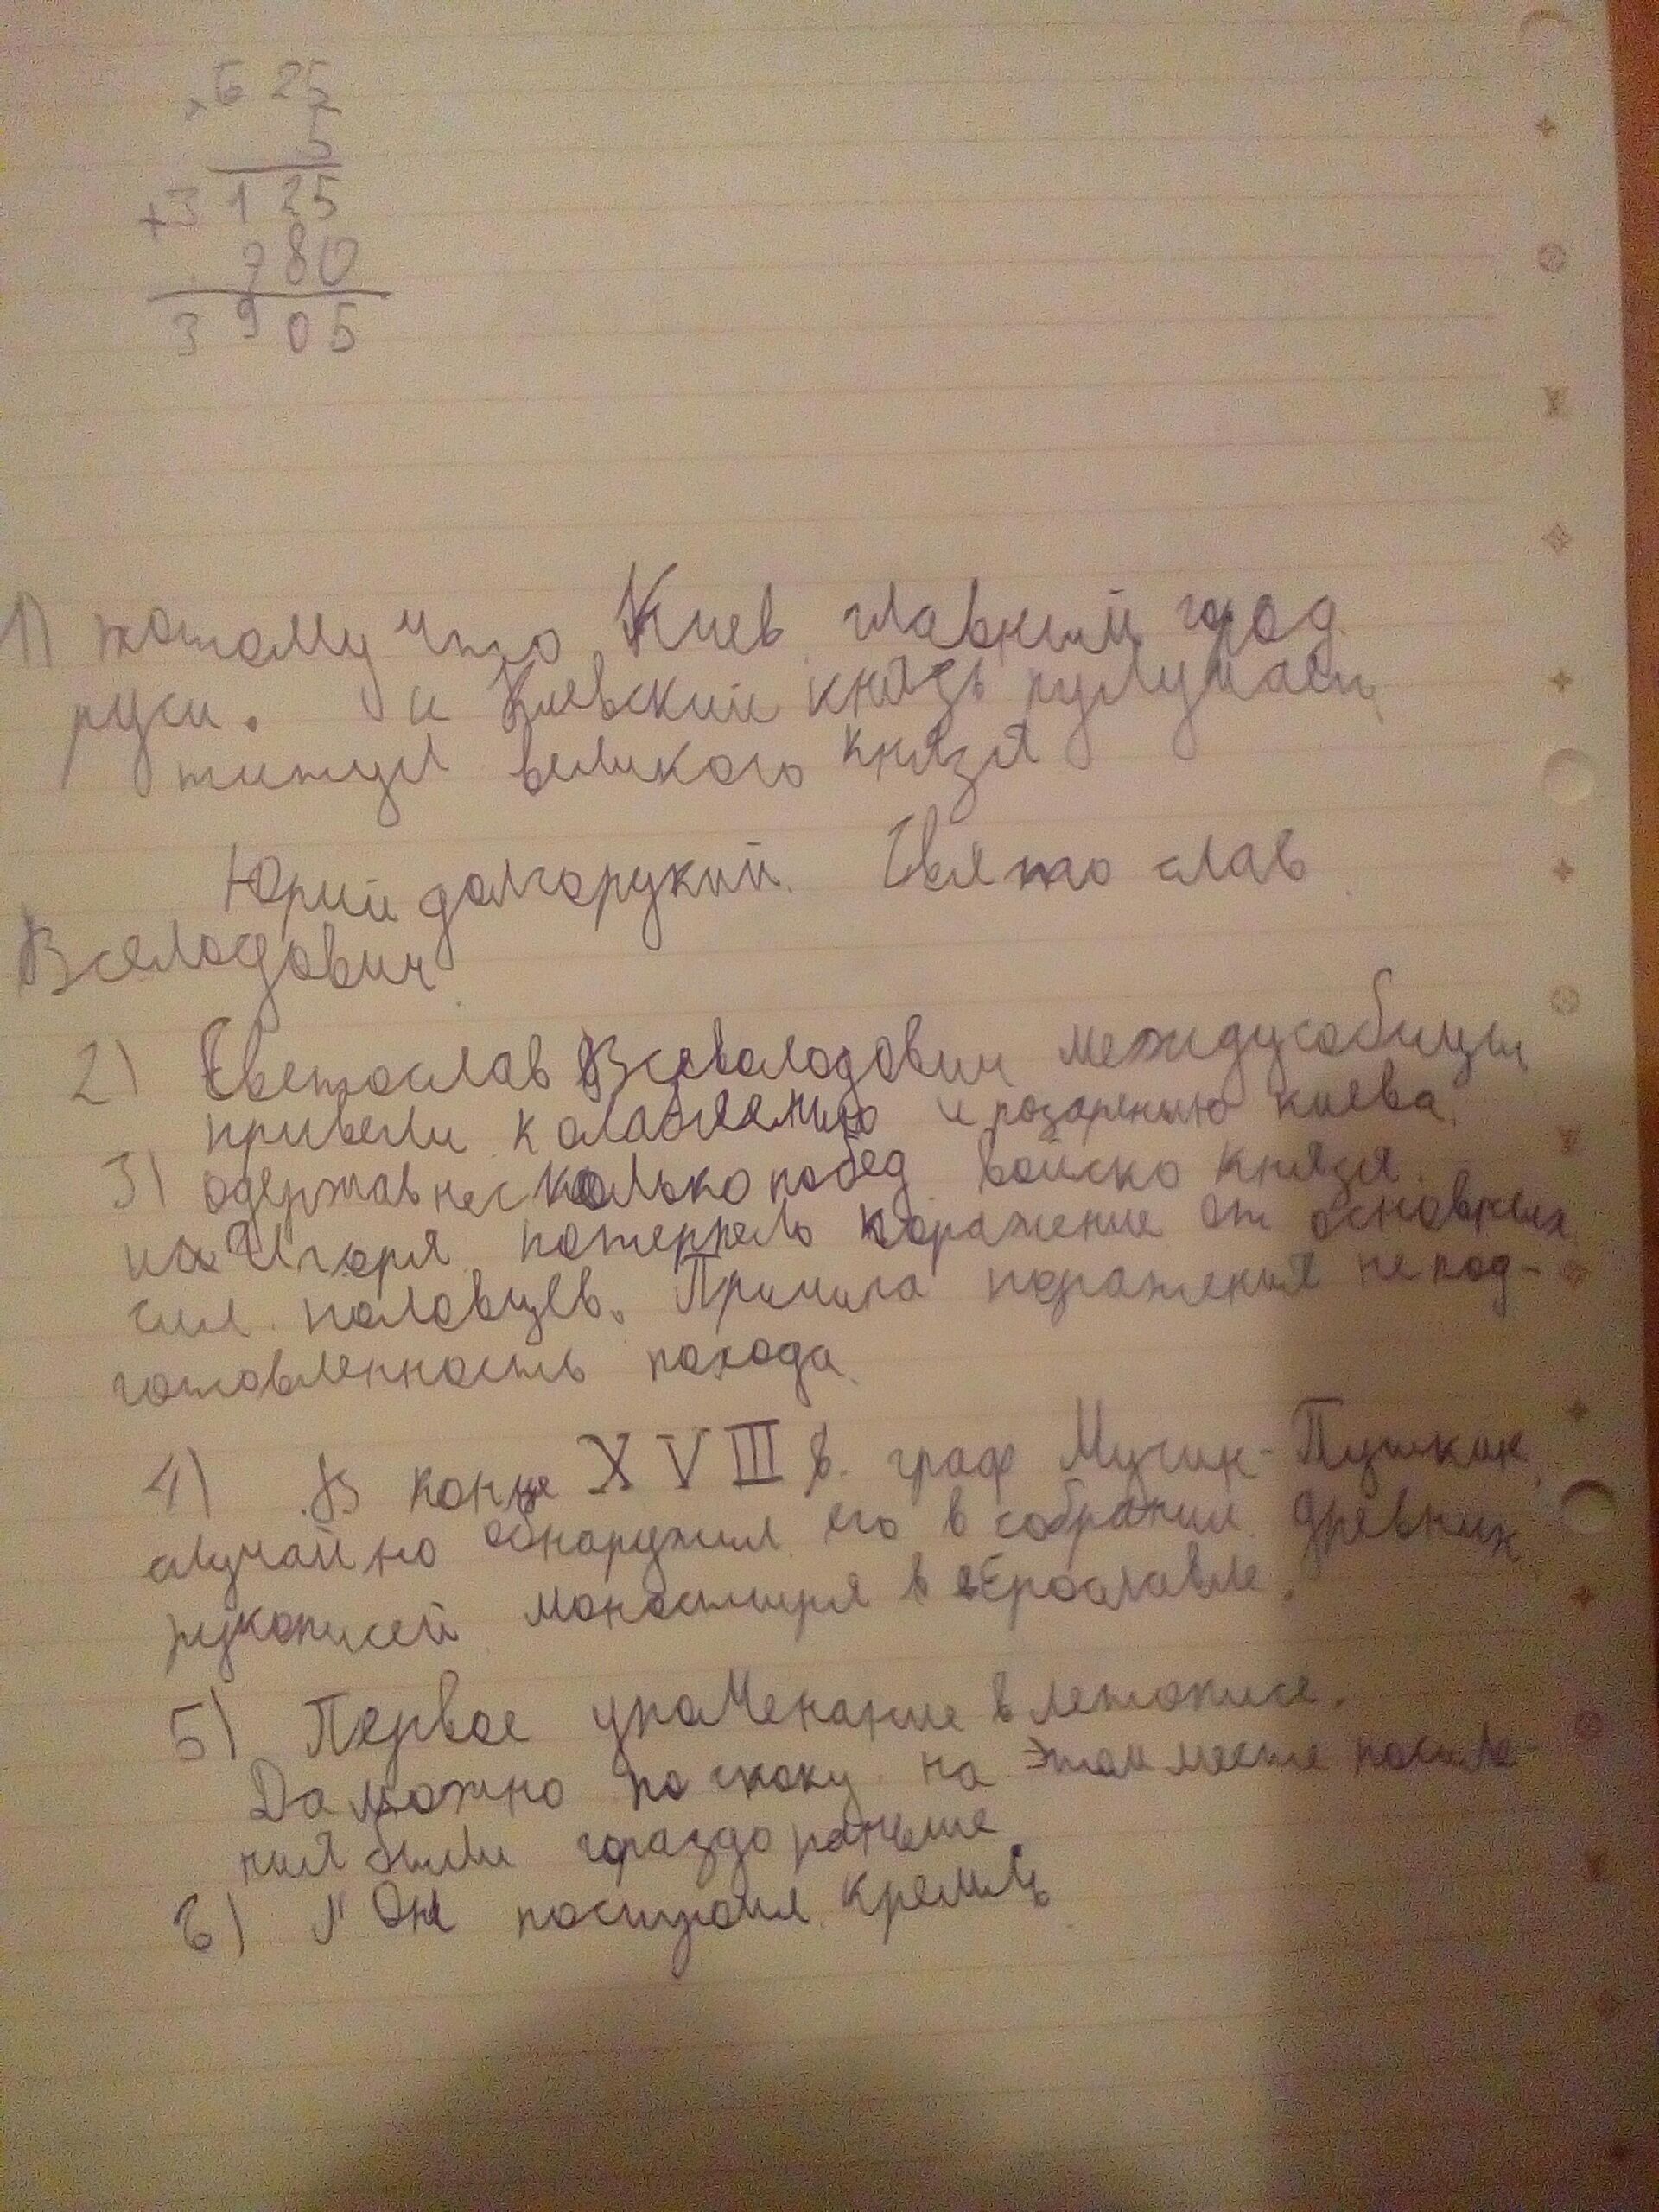 × 625
5
+ 3125
780
3905
1) потому что Киев главний город
руси. и Киевский князь
титул великого князя
Юрий долгорукий. Свято слав
Всялодович
2) Светослав Всеволодович междусобицы
привели к и розарению киева.
3) одержав несколько побед войско князя
Игоря потеррело поражение от основных
сил половцев. Причина поражения непод-
готовленность похода.
4) В конце XVIII в. граф Мусин-Пушкин
случайно обнаружил его в собрании древних
рукописей монастиря в Ярославле.
5) Первое упоменание в летописе.
Да можно поскоку на этом месте поселе-
ния были гораздо раньше
6) Он построил кремль